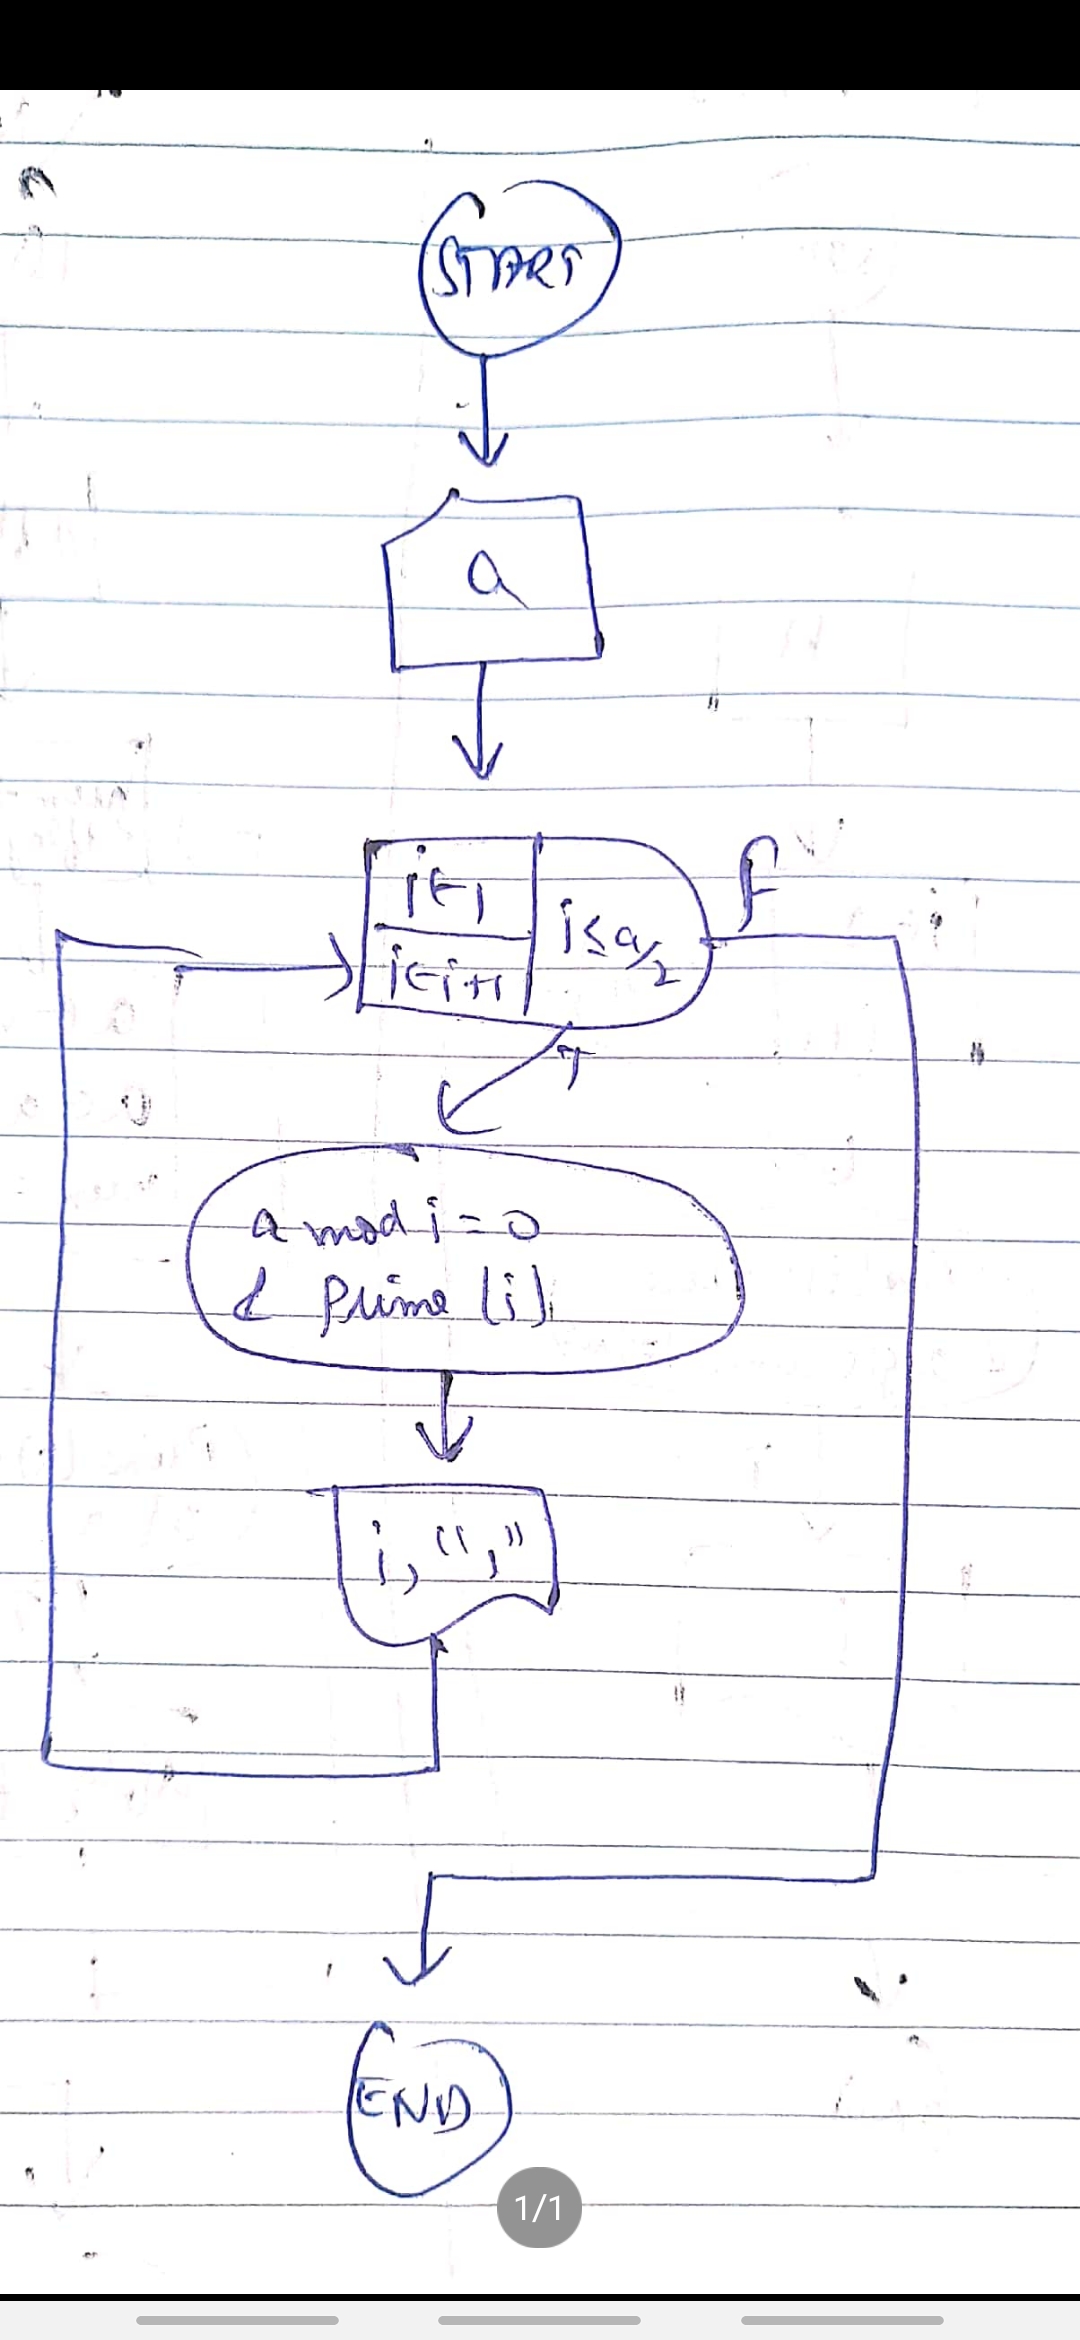 START
a
i←1
i←i+1
i≤a/2
F
T
a mod i = 0
& Prime (i)
i, ","
END
1/1